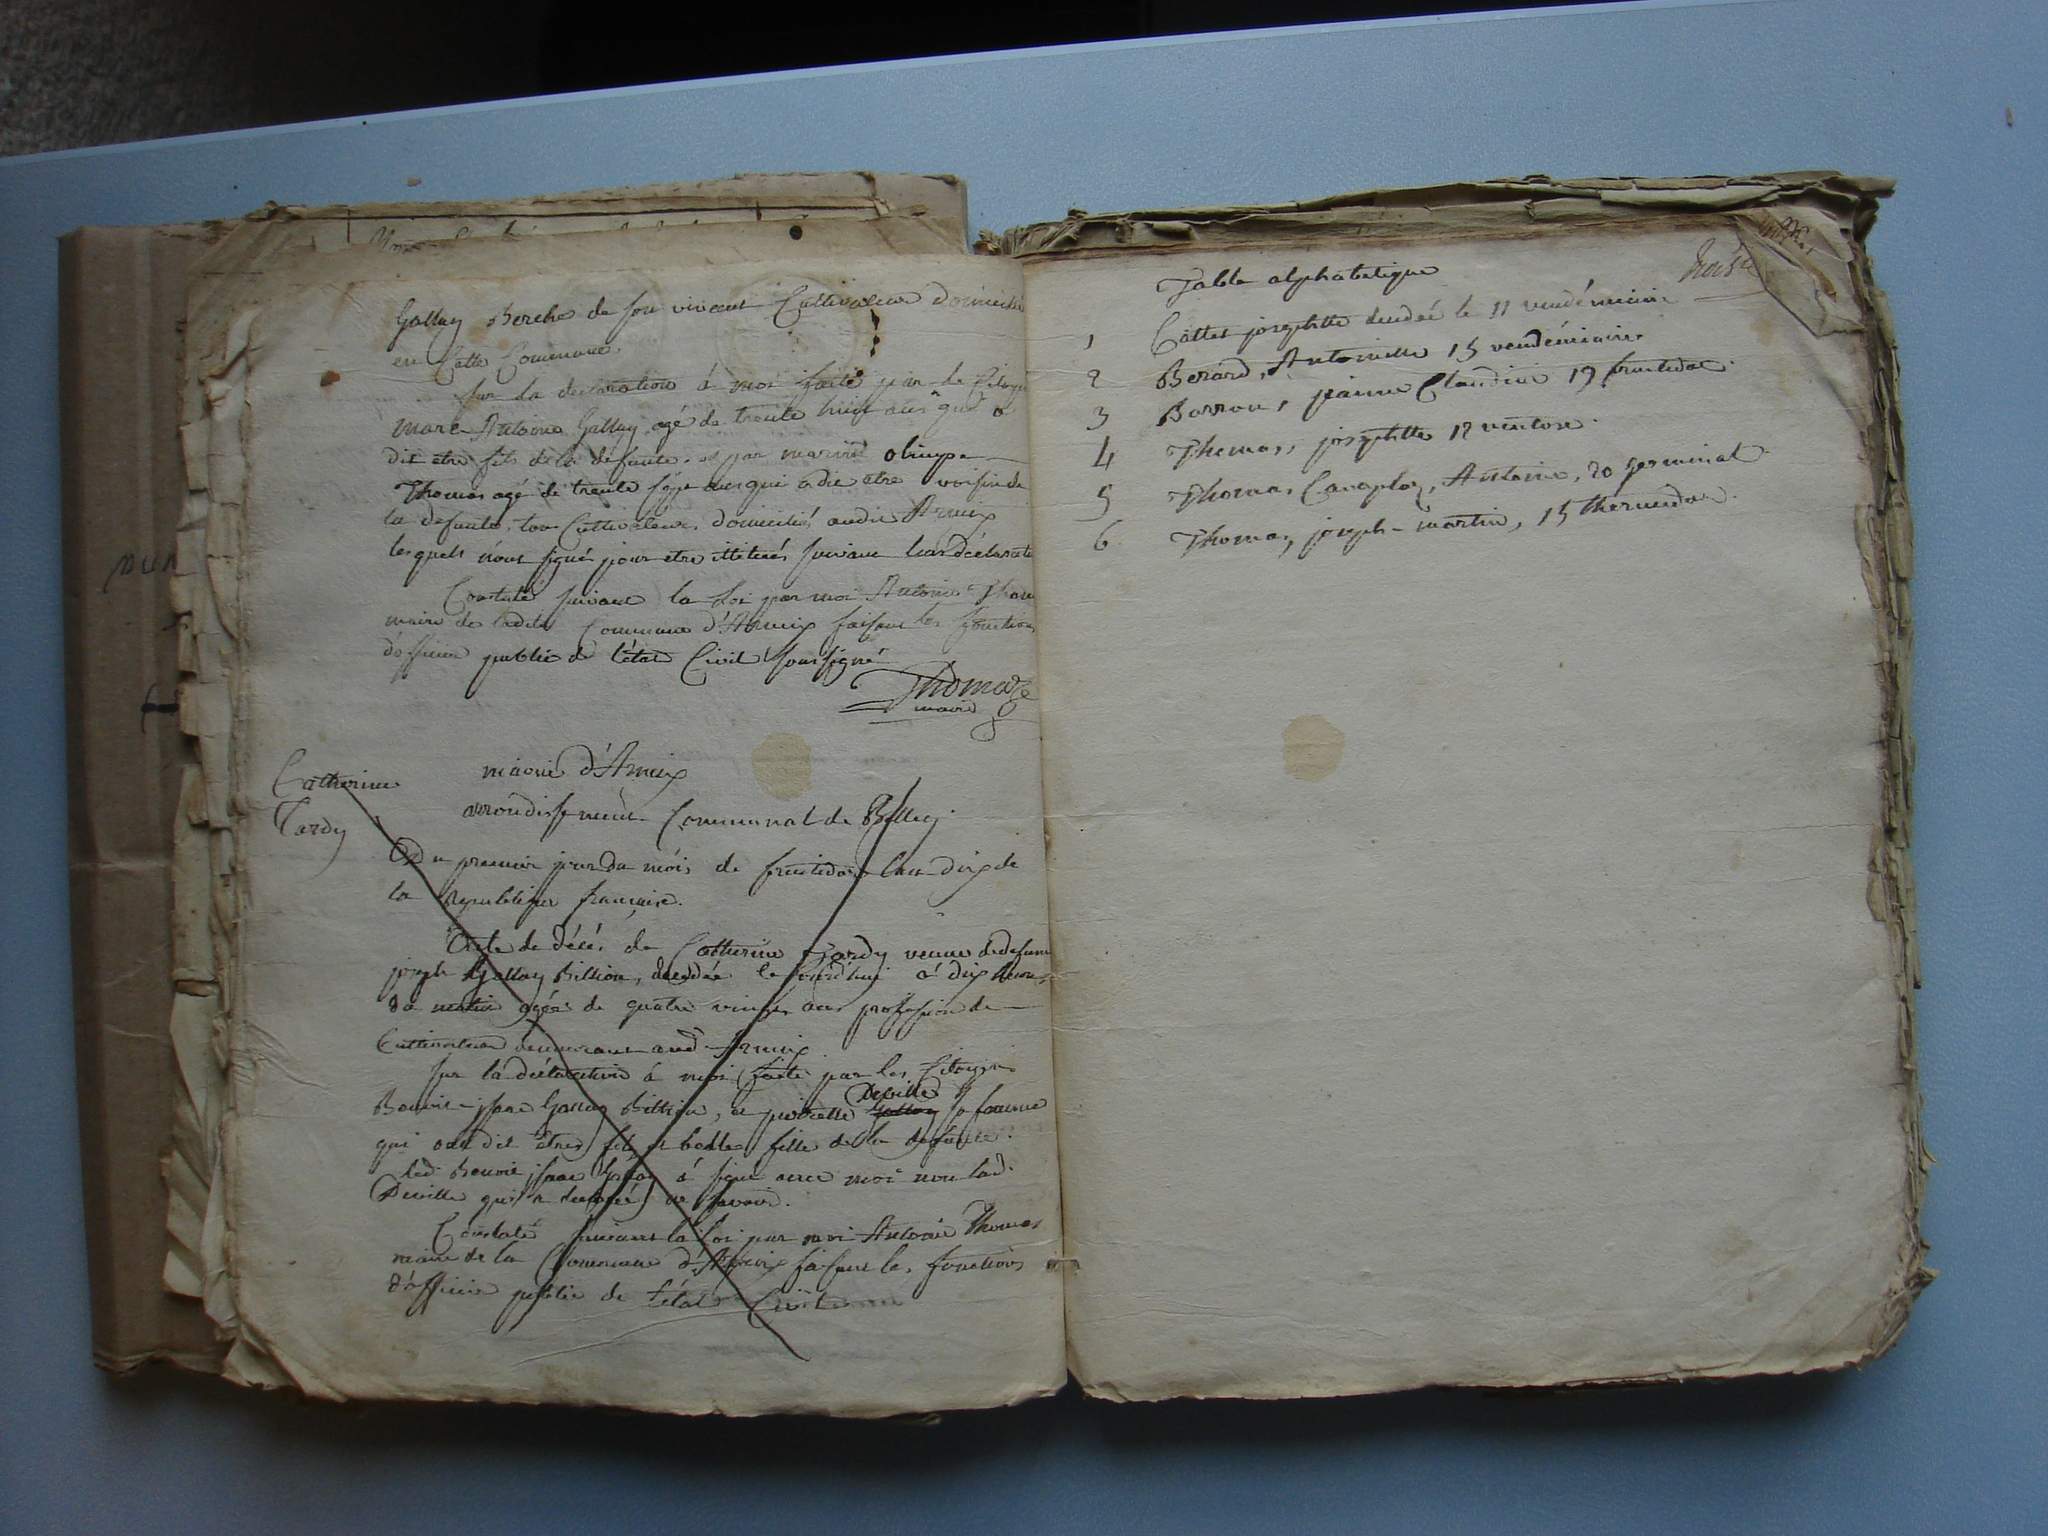 Gallay Berche de son vivant Cultivateur domicilié
en Cette Commune.
Sur la declaration á moi faite par le Citoyen
marc Antoine Gallay agé de trente huit ans qui a
dit etre fils de la defunte, et par marin olimpe
Thomas agé de trente sept ans qui a dit etre voisin de
la defunte, tous Cultivateurs domiciliés audit Armix
lesquels n'ont signé pour etre illiterés suivant leur déclaration
Constaté suivant la Loi par moi Antoine Thomas
maire de ladite Commune d'Armix faisant les fonctions
d'officier public de l'état Civil soussigné
Thomas
maire
Catherine
Tardy
mairie d'Armix
arrondissement Communal de Belley
Du premier jour du mois de fructidor l'an dix de
la Republique française.
Acte de décés de Catherine Tardy veuve de defunt
joseph Gallay Billion, decedée le jourd'hui á dix heures
du matin agée de quatre vingts ans profession de
Cultivateur demeurant aud. Armix
Sur la déclaration á moi faite par les Citoyens
Gallay Billion, et pierrette Deville sa femme
qui ont dit êtres fils et belle fille de la defunte.
Led. á signé avec moi non lad.
Deville qui a declaré ne savoir.
Constaté suivant la Loi par moi Antoine Thomas
maire de la Commune d'Armix faisant les fonctions
d'officier public de l'état Civil
Table alphabetique
1 josephte decedée le 11 vendémiaire
2 Berard, Antoinette 15 vendémiaire
3 Barron, jeanne Claudine 19 fructidor.
4 Thomas, josephte 12 ventose.
5 Thomas Antoine, 20 germinal
6 Thomas, joseph-martin, 15 thermidor.